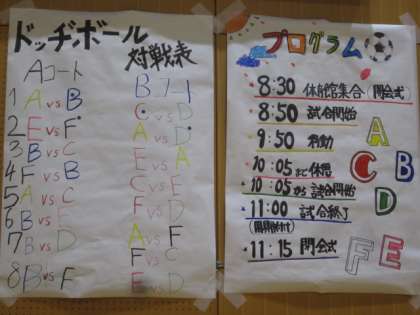 ドッヂボール
対戦表
Aコート
1 A vs B
2 E vs F
3 B vs C
4 F vs B
5 A vs C
6 B vs E
7 B vs D
8 B vs F
Bコート
C vs D
A vs D
E vs A
C vs E
F vs D
A vs F
F vs C
E vs D
プログラム
8:30 体育館集合(開会式)
8:50 試合開始
9:50 移動
10:05まで休憩
10:05から試合開始
11:00 試合終了
11:15 閉会式
A
C B
D
F E